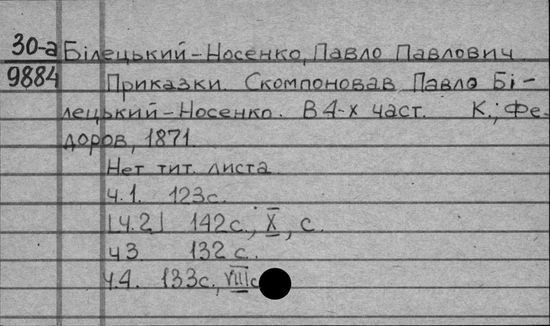 30-а Білецький-Носенко, Павло Павлович
9884 Приказки. Скомпоновав Павло Бі-
лецький-Носенко. В 4-х част. К., Фе-
доров, 1871.
Нет тит. листа
ч.1. 123с.
[ч.2] 142с., X, с.
ч3. 132 с.
ч.4. 133с., VIIIс